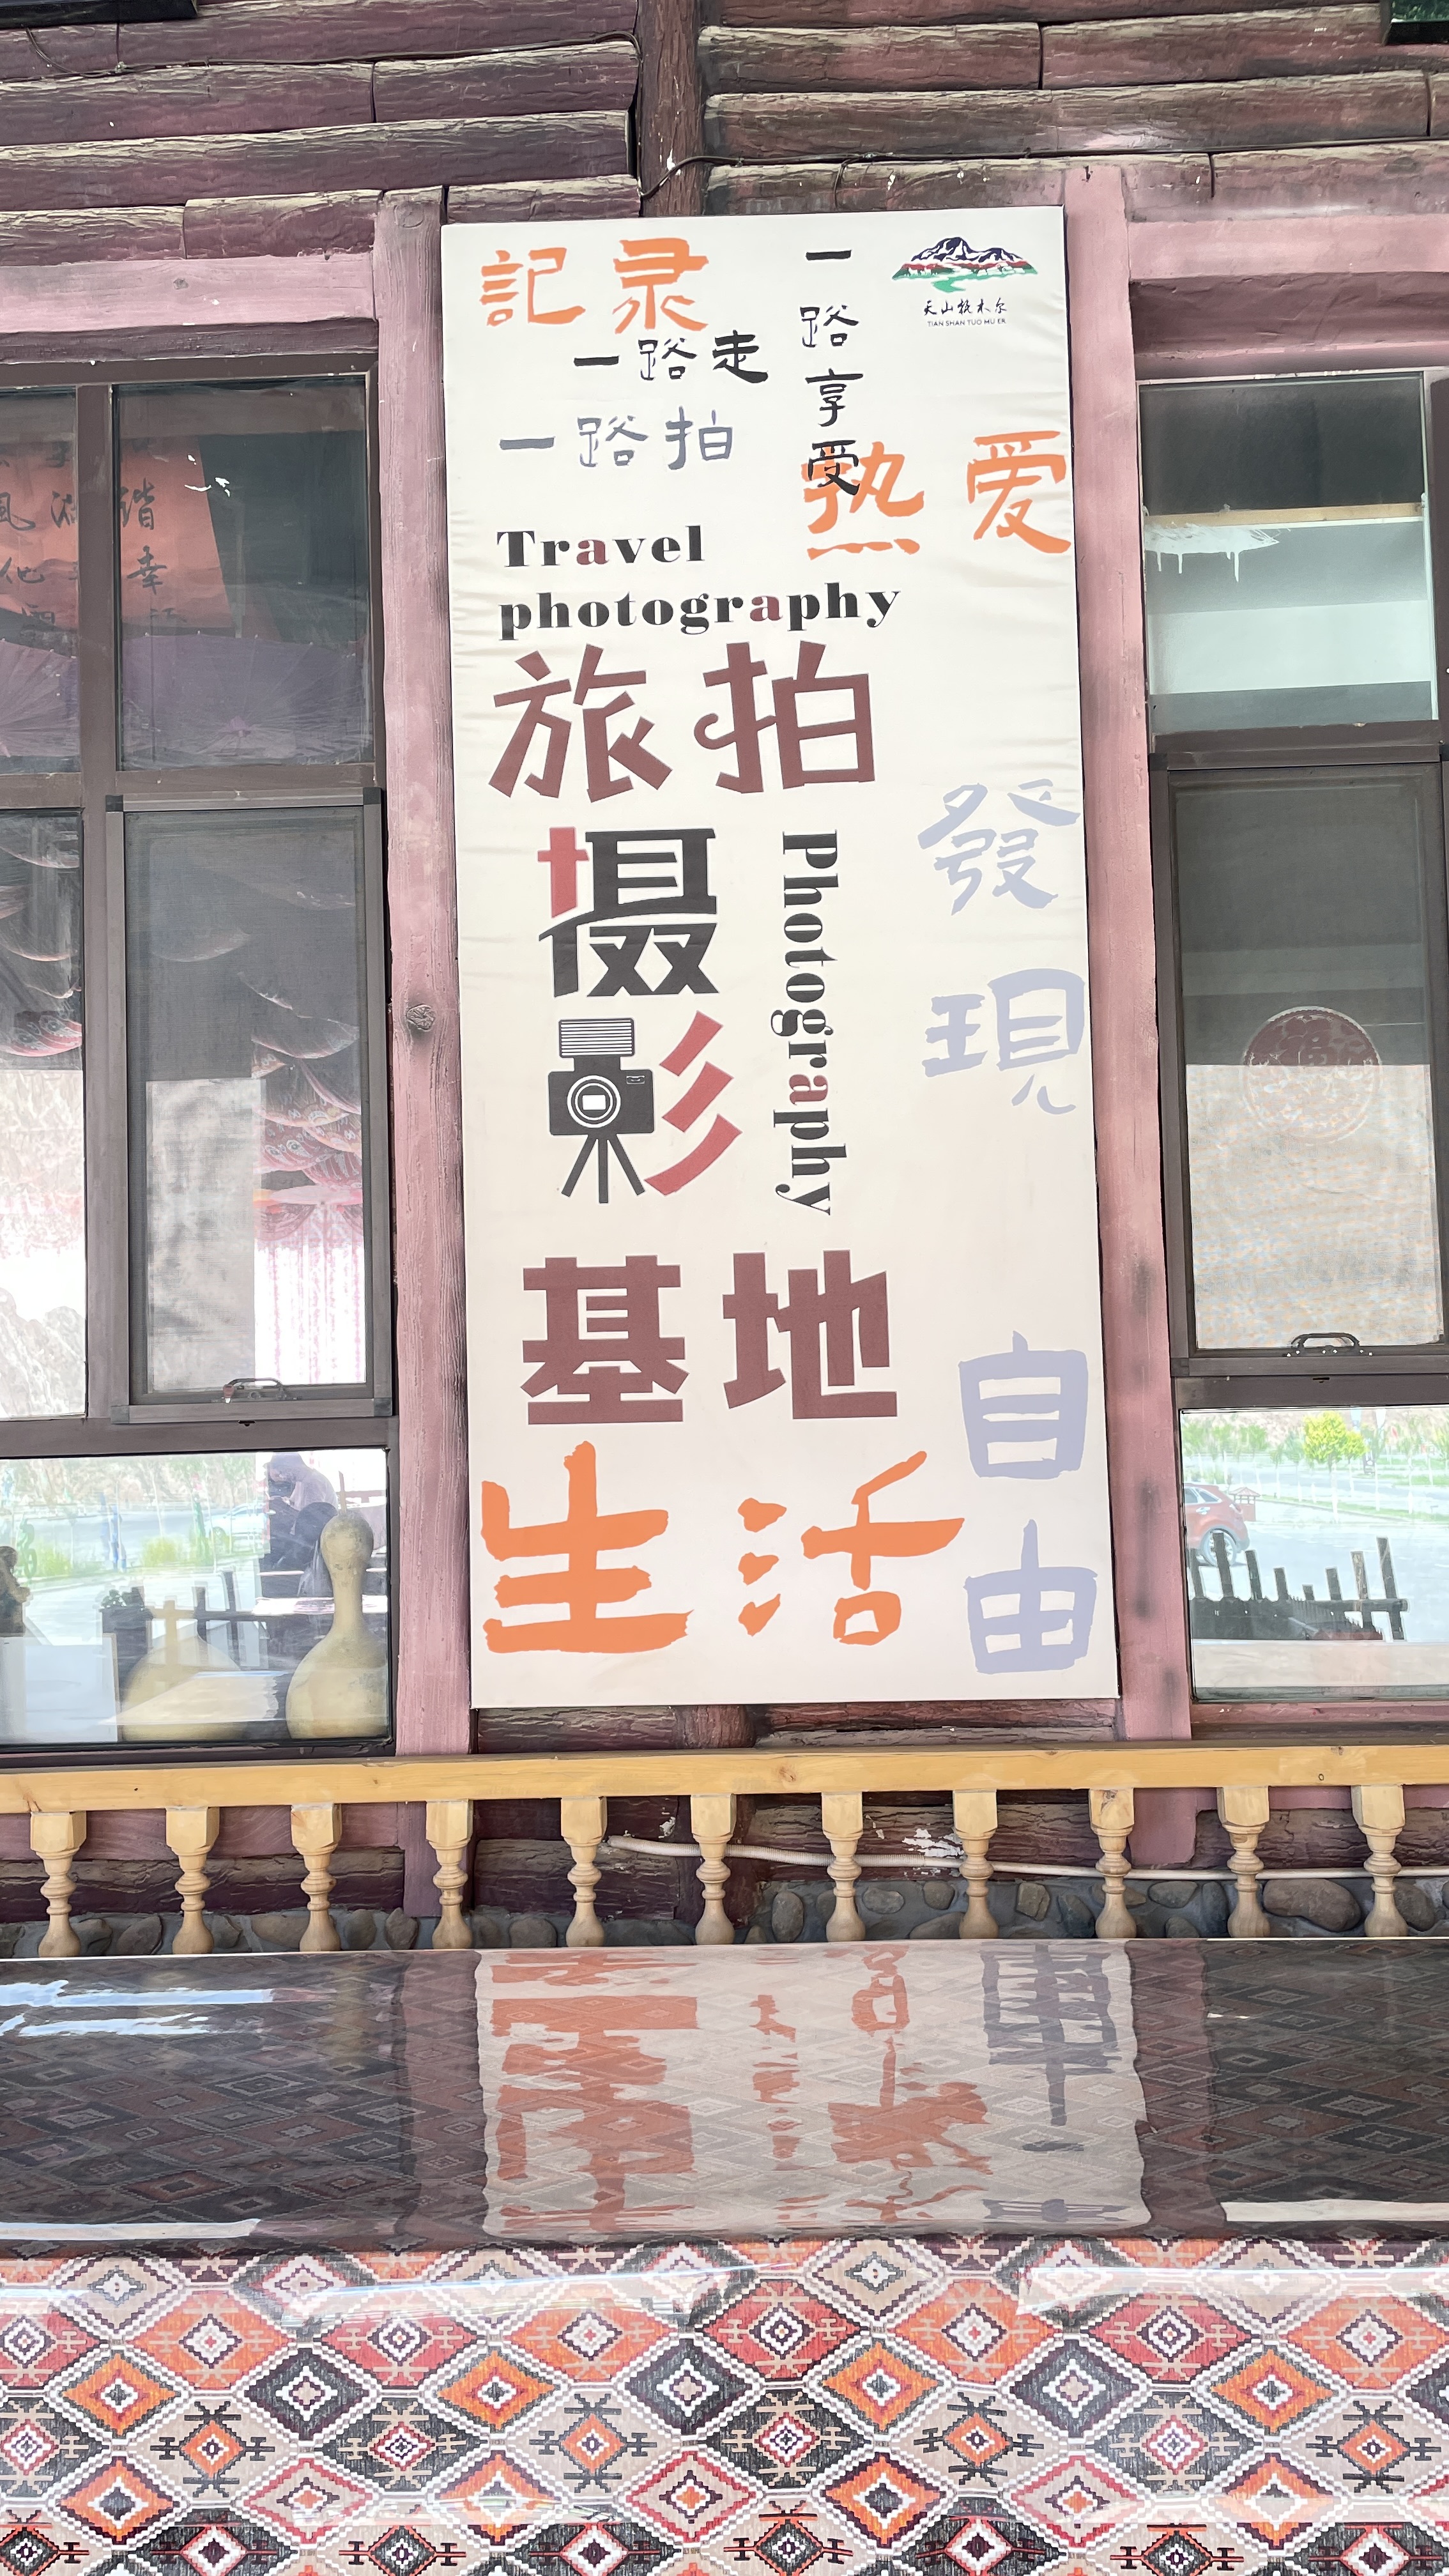 記录
一路走
一路拍
一路享受
天山托木尔
TIAN SHAN TUO MU ER
热爱
Travel
photography
旅拍
摄影
Photography
發現
基地
自由
生活